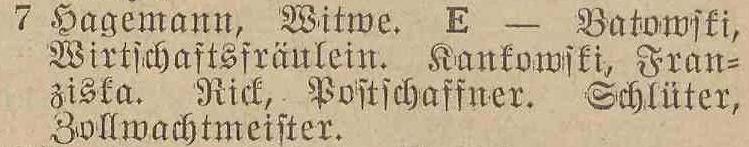 7 Hagemann, Witwe. E — Batowſki,
Wirtſchaftsfräulein. Kankowſki, Fran-
ziska. Rick, Poſtſchaffner. Schlüter,
Zollwachtmeiſter.